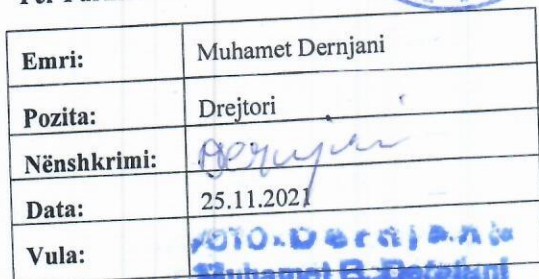 Emri: Muhamet Dernjani
Pozita: Drejtori
Nënshkrimi:
Data: 25.11.2021
Vula: Dernjani
Muhamet B.